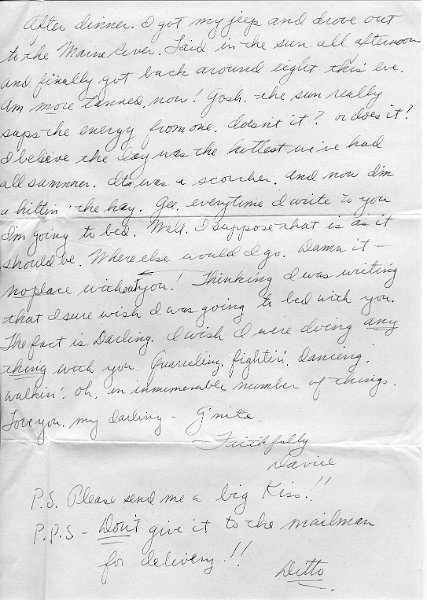 After dinner. I got my jeep and drove out
to the Marne River. Laid in the sun all afternoon
and finally got back around eight this eve.
Am more tanned, now! Gosh. the sun really
saps the energy from one. doesn't it? or does it?
I believe the day was the hottest we've had
all summer. Its was a scorcher. And now I'm
a hittin' the hay. Gee. everytime I write to you
I'm going to bed. Well. I suppose that is as it
should be. Where else would I go. Damn it -
no place without you! Thinking I was writing
that I sure wish I was going to bed with you.
The fact is Darling. I wish I were doing any
thing with you. Quarreling, fightin', dancing,
walkin'. oh. an innumerable number of things.
Love you, my darling - G'nite.
Faithfully
P.S. Please send me a big Kiss!!
P.P.S - Don't give it to the mailman
for delivery!!
Ditto